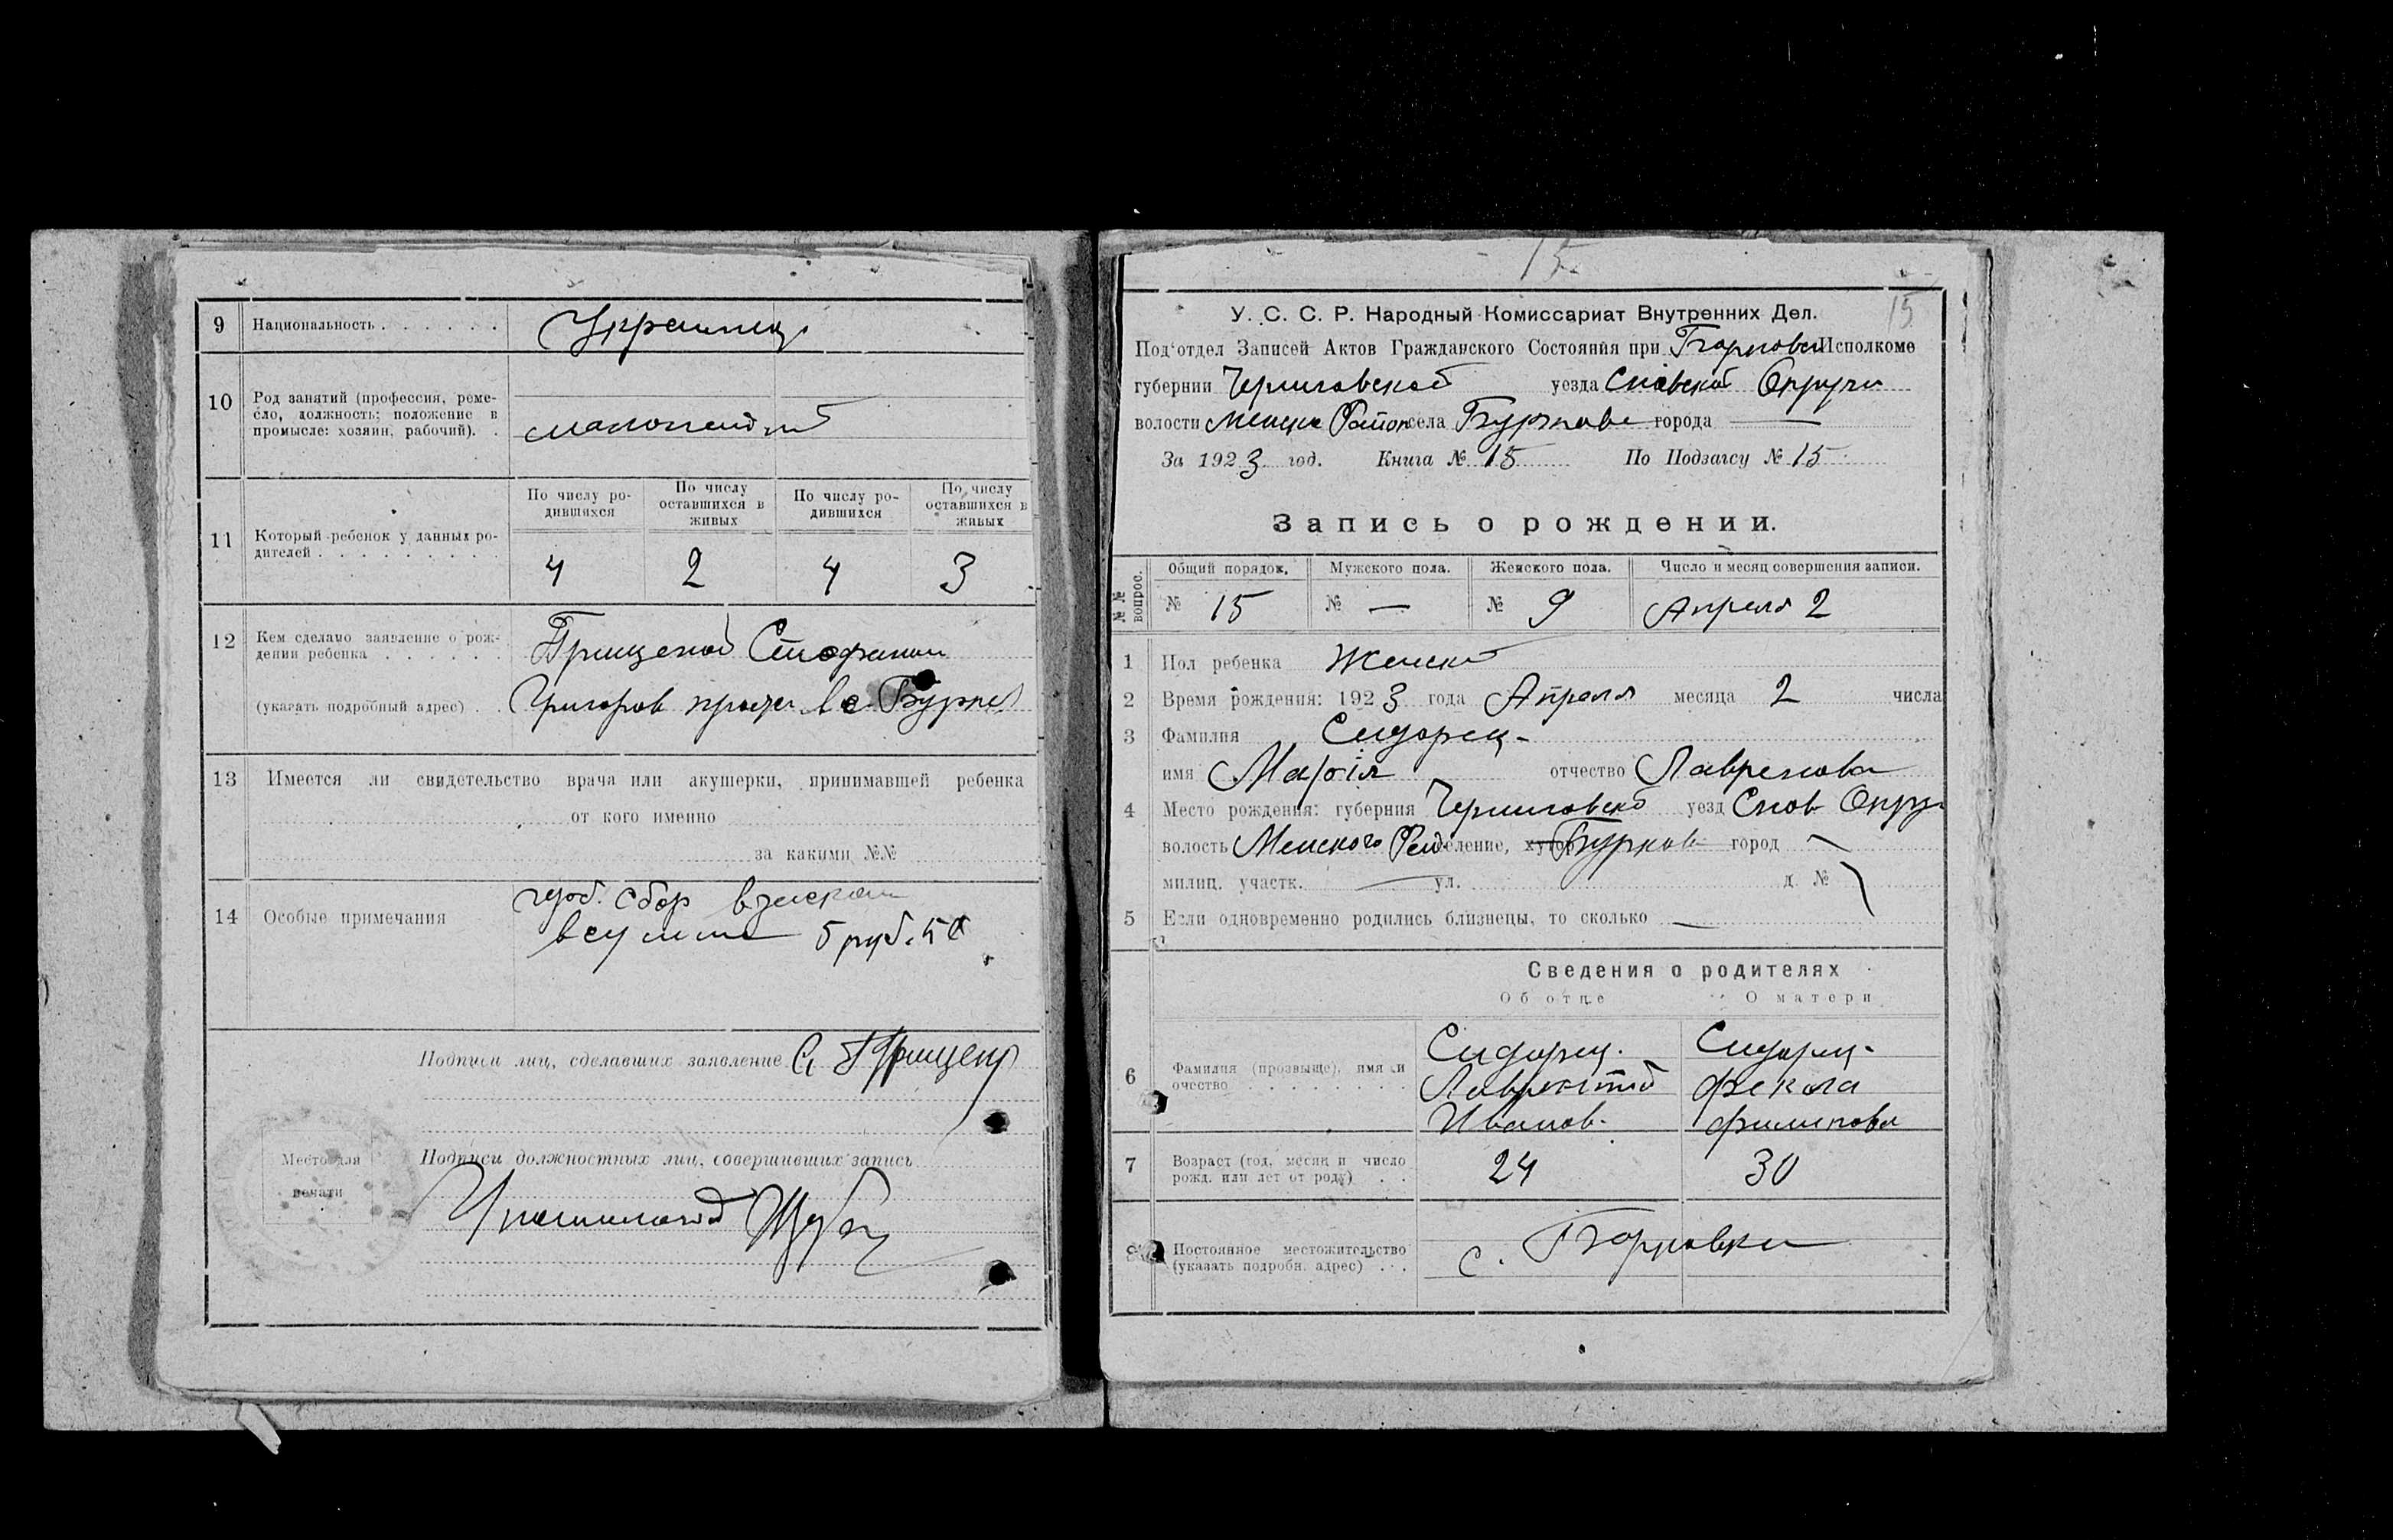 9 Национальность Украинц.
10 Род занятий (профессия, реме-
сло, должность; положение в
промысле: хозяин, рабочий).
11 Который ребенок у данных ро-
дителей
По числу ро-
дившихся
По числу
оставшихся в
живых
По числу ро-
дившихся
По числу
оставшихся в
живых
4 2 4 3
12 Кем сделано заявление о рож-
дении ребенка
(указать подробный адрес)
Грищенко
Григоров в с.
13 Имеется ли свидетельство врача или акушерки, принимавшей ребенка
от кого именно
за какими №№
14 Особые примечания
сбор взыскан
5 руб. 50
Подписи лиц, сделавших заявление С Грищенко
Подписи должностных лиц, совершивших запись
Место для
печати
15
15
У. С. С. Р. Народный Комиссариат Внутренних Дел.
Под'отдел Записей Актов Гражданского Состояния при Исполкоме
губернии Черниговской уезда Сновской Округи
волости Менск Район села Бурковки города —
За 1923 год. Книга № 15 По Подзагсу № 15
Запись о рождении.
№№ вопрос.
Общий порядок. Мужского пола. Женского пола. Число и месяц совершения записи.
№ 15 № — № 9 Апреля 2
1 Пол ребенка Женск
2 Время рождения: 1923 года Апреля месяца 2 числа
3 Фамилия Сидорец
имя Марія отчество Лавренова
4 Место рождения: губерния Черниговско уезд Снов Окру
волость Менского селение, хутор Бурков город
милиц. участк. — ул. д. №
5 Если одновременно родились близнецы, то сколько —
Сведения о родителях
Об отце О матери
6 Фамилия (прозвыще), имя и
очество
Сидорец. Сидорец
Лаврентий Фекла
Иванов. Филипова
7 Возраст (год, месяц и число
рожд. или лет от роду)
24 30
8 Постоянное местожительство
(указать подробн. адрес)
с. Борковки